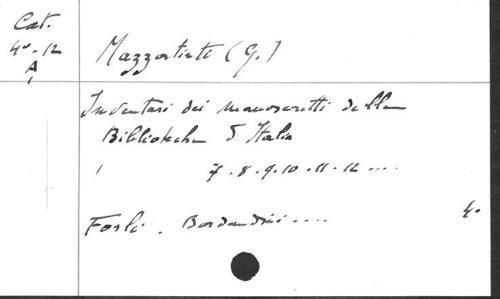 Cat.
4º-12
A
Mazzatinti (G.)
Inventari dei manoscritti delle
Biblioteche d'Italia
7-8-9-10-11-12 ....
Forli. Bordandini ....
4º